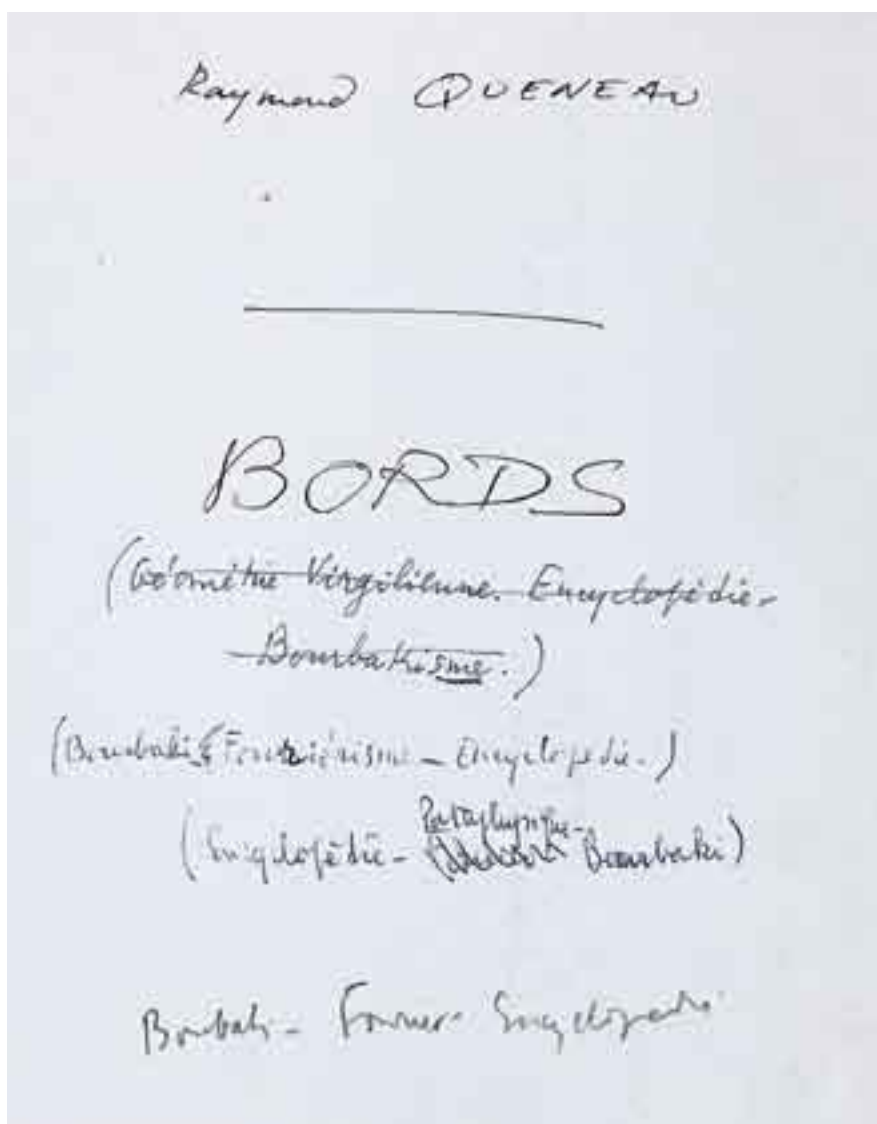 Raymond QUENEAU
BORDS
(Géométrie Virgilienne. Encyclopédie-
Bourbakisme.)
(Bourbaki Fouriérisme - Encyclopédie -)
Pataphysique-
(Encyclopédie - Bourbaki)
Bourbaki - Fourier - Encyclopédie